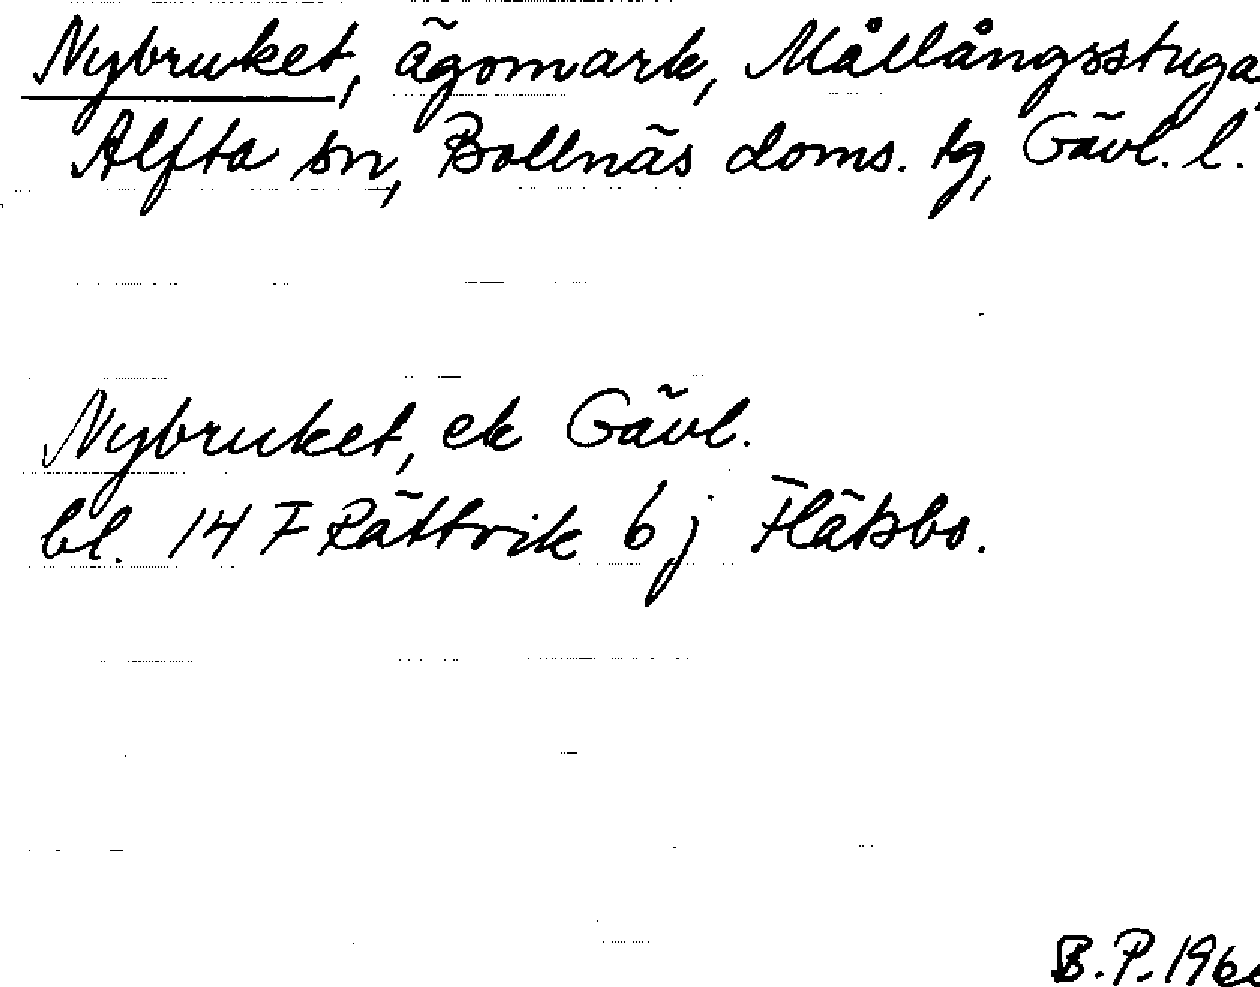 Nybruket, ägomark, Mållångsstuga
Alfta sn, Bollnäs doms. tg, Gävl. l.
Nybruket, ek Gävl.
bl. 14 F Rättvik 6 j Flätsbo.
B.P. 196